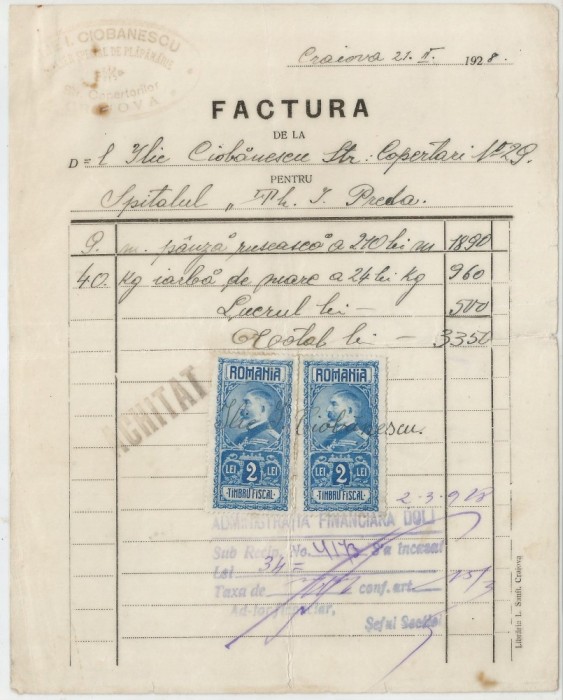 I. CIOBANESCU
DE PLĂPĂMĂRIE
Str. Copertarilor
CRAIOVA
Craiova 21. II. 1928.
FACTURA
DE LA
D=l Ilie Ciobănescu Str. Copertari No 29.
PENTRU
Spitalul „Ph. I. Preda.
9. m. pânză rusească a 210 lei m 1890
40. Kg iarbă de mare a 24 lei Kg 960
Lucrul lei — 500
Total lei — 3350
ACHITAT
ROMANIA ROMANIA
Ilie I. Ciobănescu.
LEI 2 LEI LEI 2 LEI
TIMBRU FISCAL TIMBRU FISCAL
2-3-928
ADMINISTRAȚIA FINANCIARA DOLJ
Sub Recip. No. 4173 s'a incasat
Lei 34=
Taxa de conf. art. 15/3
Administrator,
Șeful Secției
Librăria I. Samit. Craiova